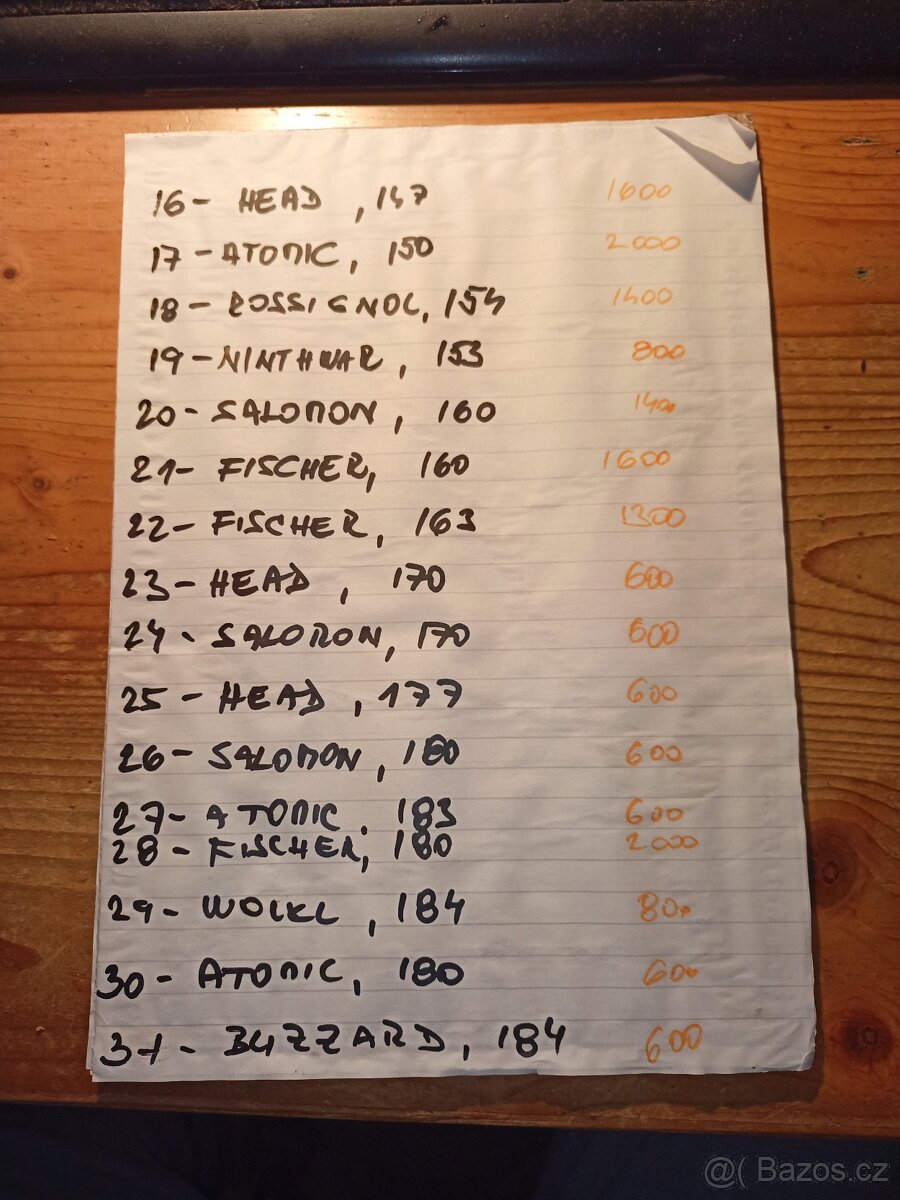 16- HEAD , 147 1600
17- ATOMIC, 150 2000
18- ROSSIGNOL, 154 1400
19- NINTHWAR, 153 800
20- SALOMON, 160 1400
21- FISCHER, 160 1600
22- FISCHER, 163 1300
23- HEAD , 170 600
24- SALOMON, 170 600
25- HEAD , 177 600
26- SALOMON, 180 600
27- ATOMIC, 183 600
28- FISCHER, 180 2000
29- WOLKL , 184 800
30- ATOMIC, 180 600
31- BLIZZARD, 184 600
@( Bazos.cz